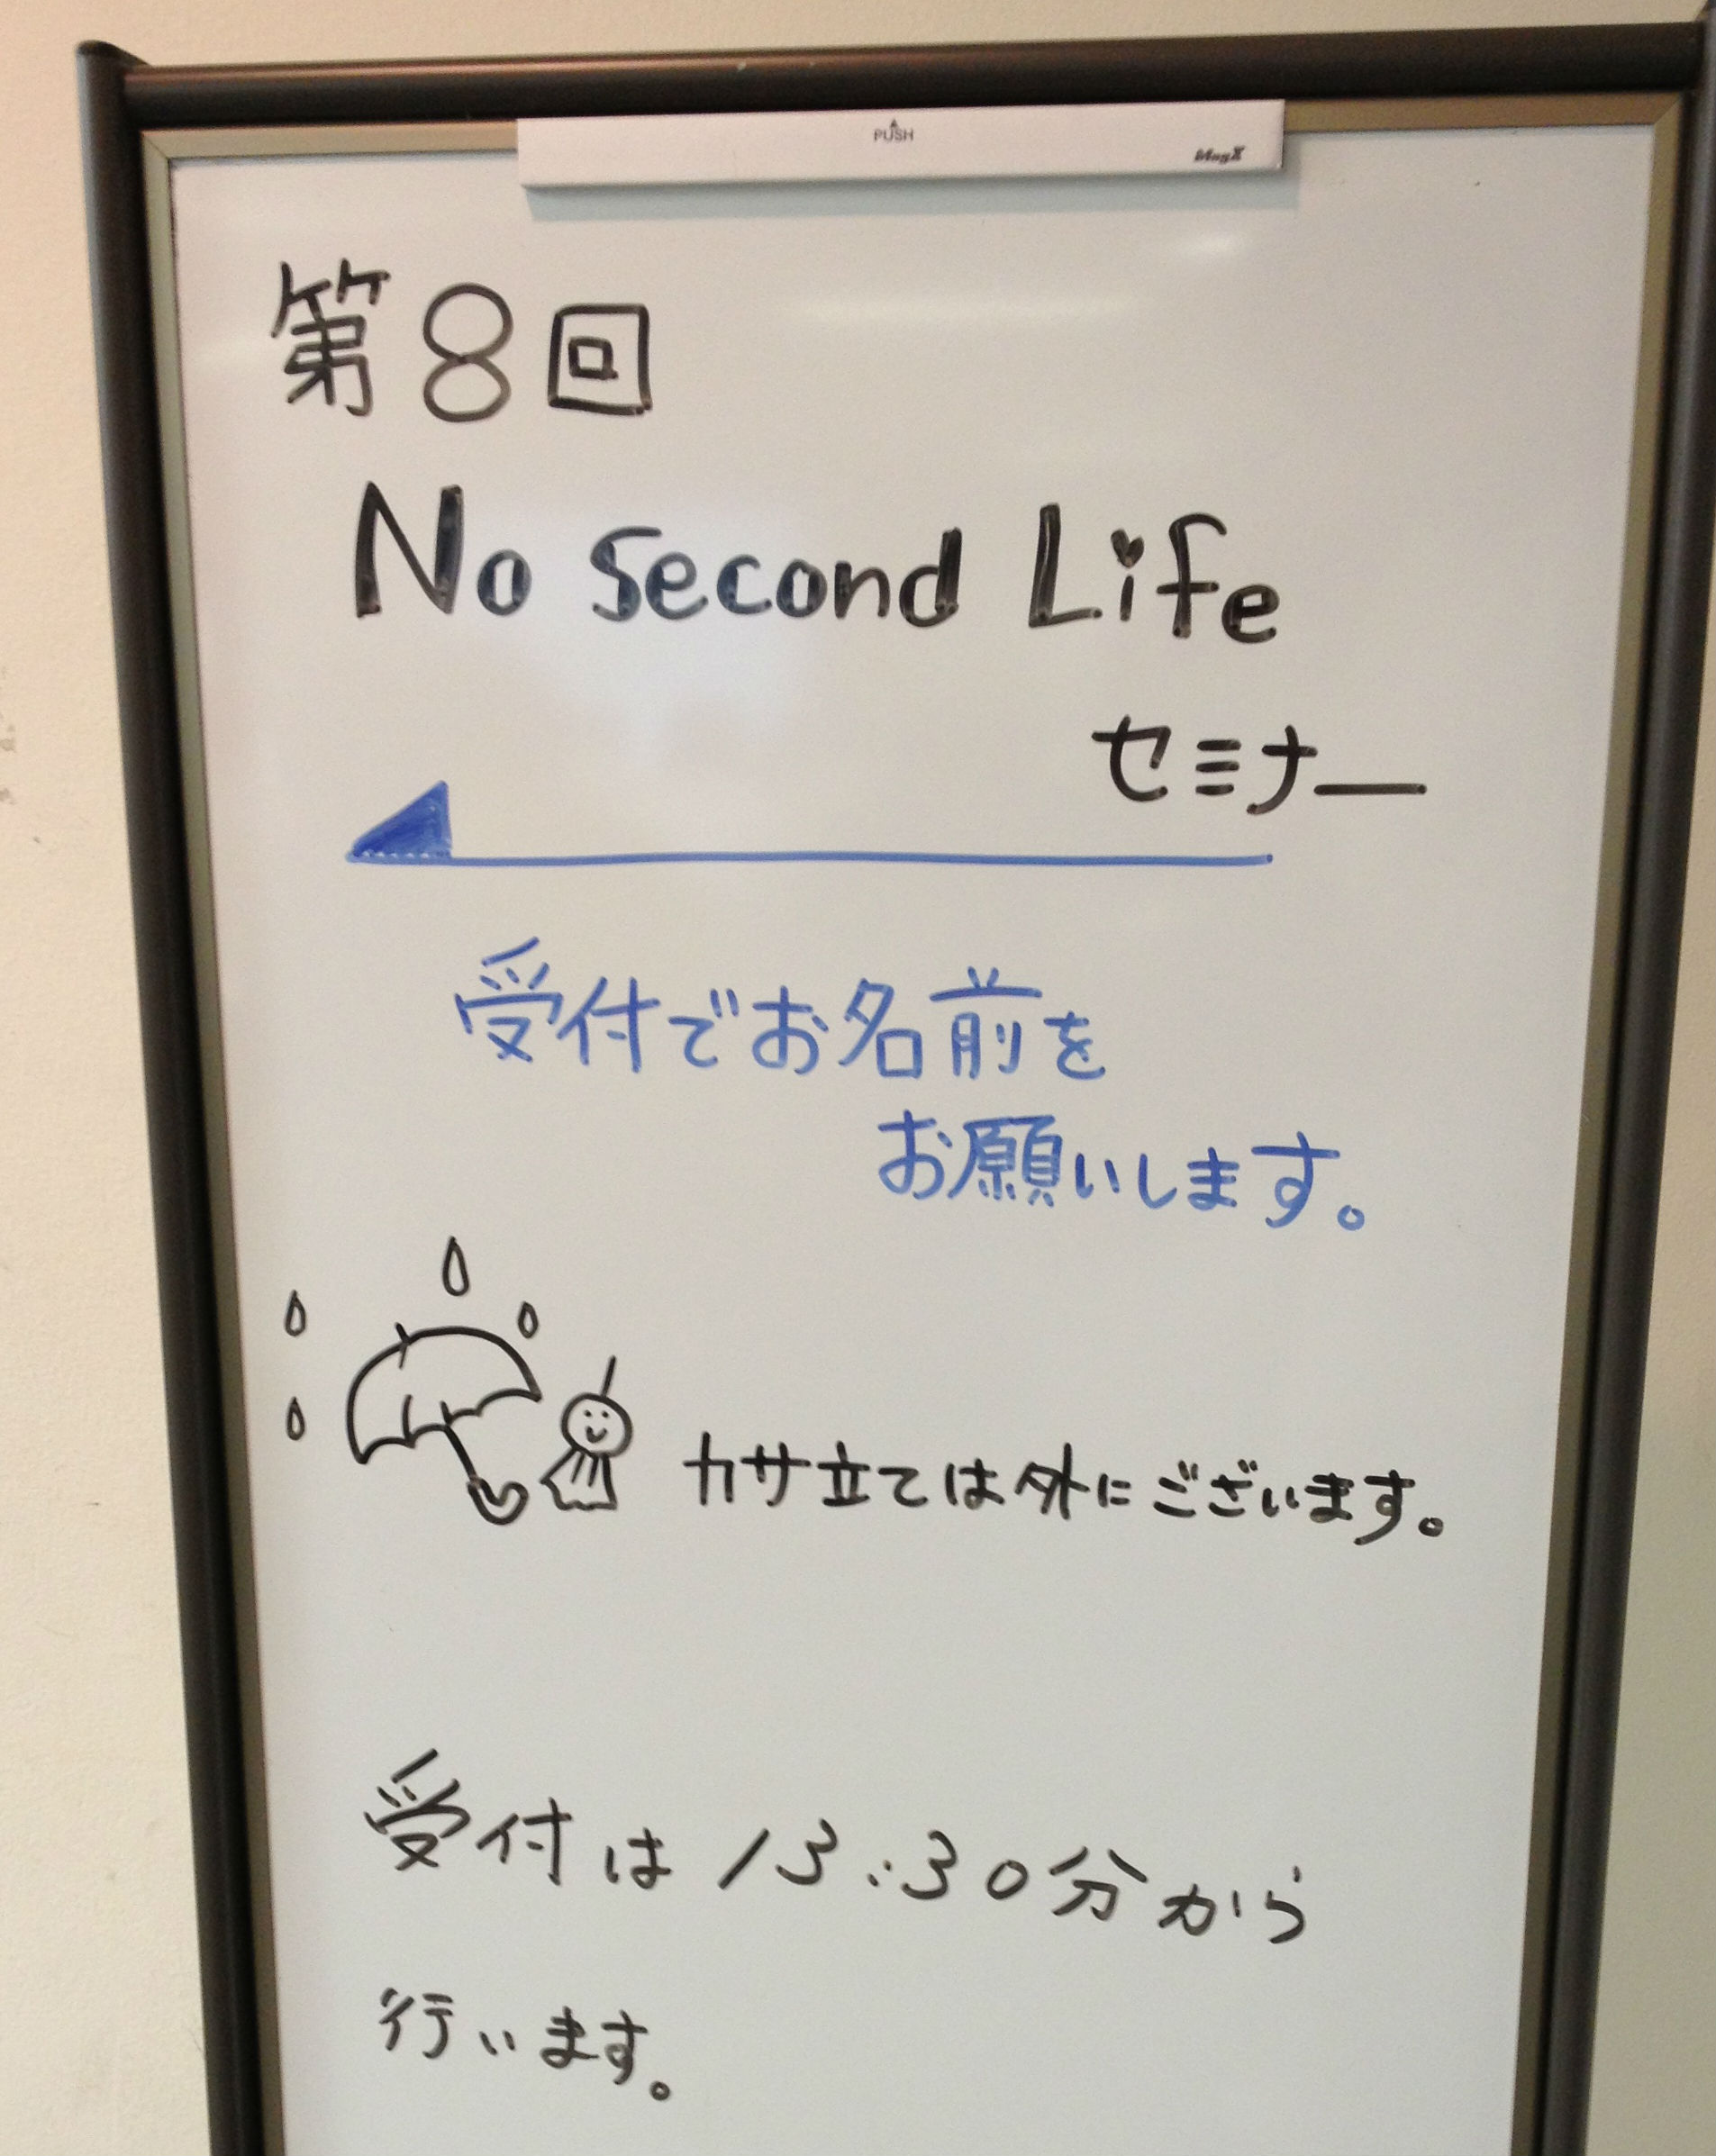 PUSH
MagX
第8回
No Second Life
セミナー
受付でお名前を
お願いします。
カサ立ては外にございます。
受付は13:30分から
行います。